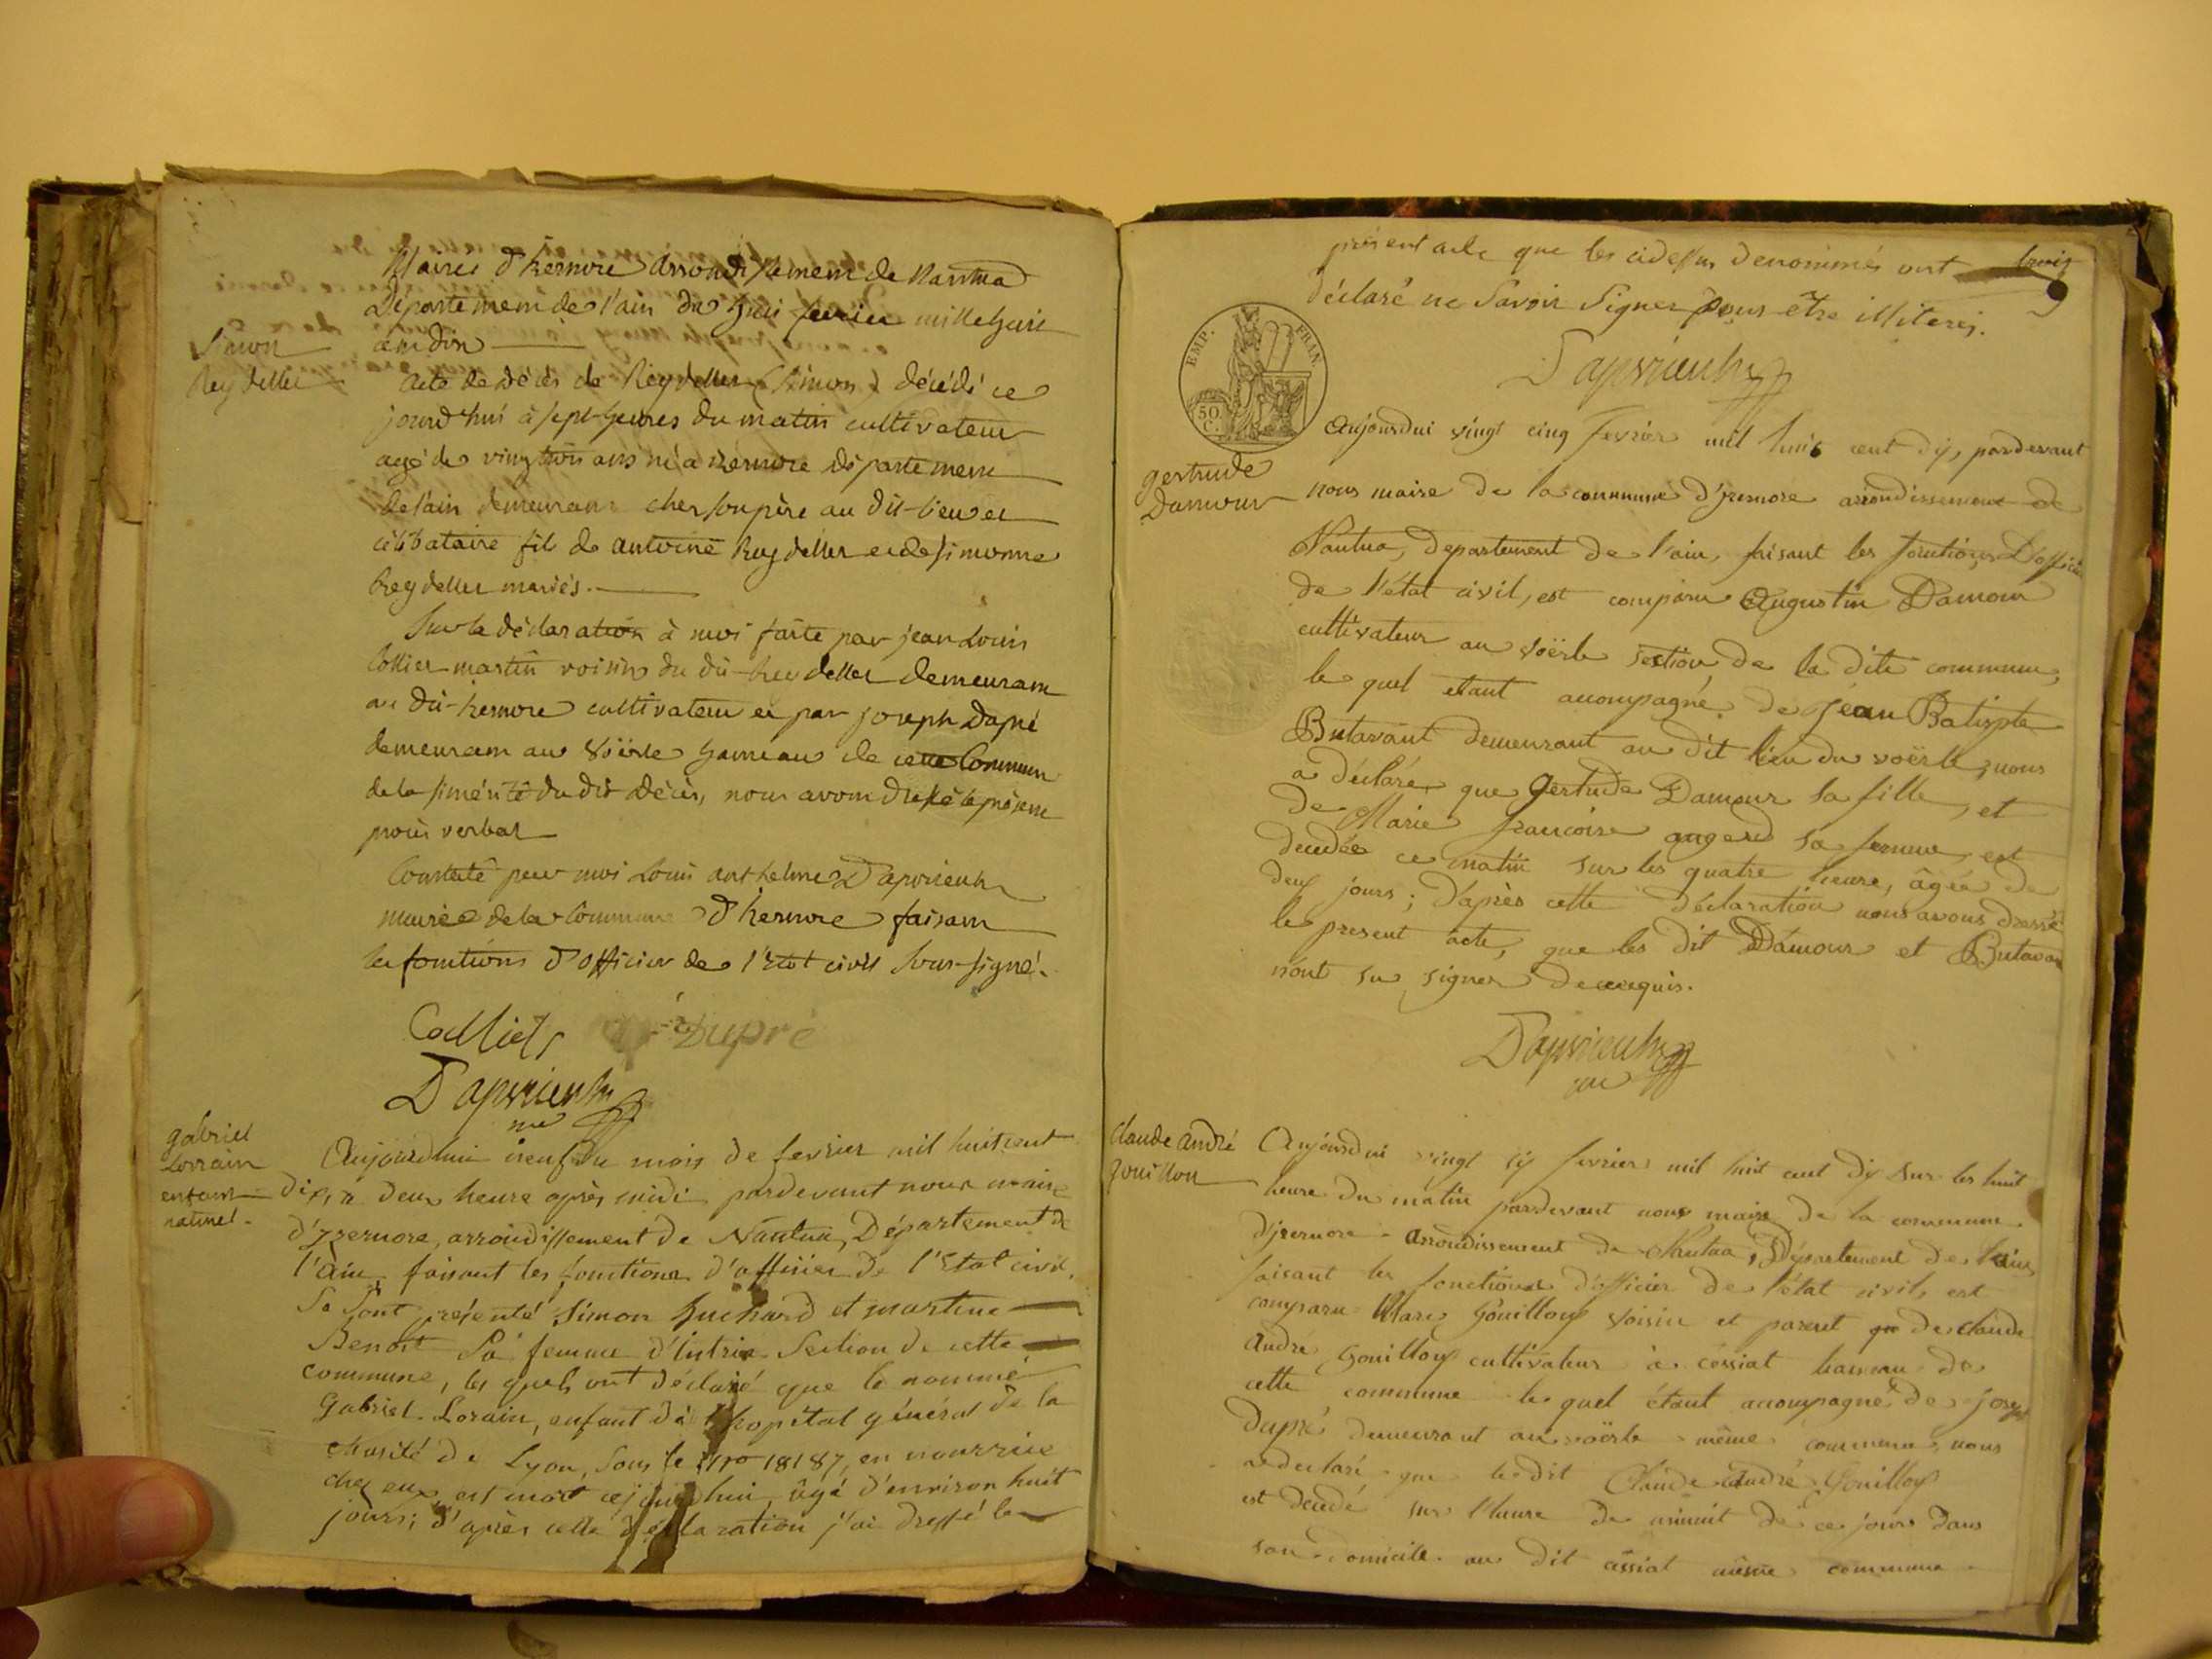 Mairie d'hernore arrondissement de Nantua
Département de l'ain du huit fevrier mille huit
cent dix
Simon
Reydellet
acte de décès de Reydellet (Simon) décédé ce
jourd'hui à sept heures du matin cultivateur
agé de vingt trois ans né a hernore département
de l'ain demeurant cher son père au dit-lieu et
célibataire fils de antoine Reydellet et de simonne
Reydellet mariés.
Sur la déclaration à moi faite par jean Louis
Collier martin voisin du dit Reydellet demeurant
au dit-hernore cultivateur et par joseph Dupré
demeurant au Voërle hameau de cette Commune
de la du dit décès, nous avons dressé le présent
procès verbal
Constaté par moi Louis anthelme Daprieux
maire de la Commune d'hernore faisant
les fonctions d'officier de l'état civil sous-signé.
Colliet Dupré
Daprieux
gabriel
Lorrain
enfant
naturel.
Aujourdhui neuf du mois de fevrier mil huit cent
dix, à deux heure après midi pardevant nous maire
d'yzernore, arrondissement de Nantua, Département de
l'Ain, faisant les fonctions d'officier de l'Etat civil,
Se Sont présenté Simon Juchard et martine
Benoit Sa femme d'intriat Section de cette
commune, les quels ont déclaré que le nommé
Gabriel Lorain, enfant de l'hopital général de la
charité de Lyon, sous le Nro 18187, en nourrice
chez eux, est mort cejourdhui, âgé d'environ huit
jours; d'après cette déclaration j'ai dressé le
présent acte que les cidessus denommés ont
déclaré ne Savoir Signer pour être illiterés.
Daprieux
EMP. FRAN.
50.
C.
gertrude
Damour
Aujourdui vingt cinq Fevrier mil huit cent dix, pardevant
nous maire de la commune d'yzernore arrondissement de
Nantua, departement de l'ain, faisant les fonctions D'officier
de l'état civil, est comparu Augustin Damour
cultivateur au voërle section de la dite commune,
le quel etant accompagné de Jean Batispte
Butavant demeurant au dit lieu du voërle, nous
a déclaré que Gertude Damour sa fille, et
de Marie francoise sa femme, est
decedée ce matin sur les quatre heure, âgée de
deux jours; d'après cette déclaration nous avons dressé
le present acte, que les dit Damour et Butavan
n'ont su signer de ce requis.
Daprieux
Claude André
gouillon
Aujourdui vingt six fevrier mil huit cent dix sur les huit
heure du matin pardevant nous maire de la commune
d'yzernore arrondissement de Nantua, Département de l'ain,
faisant les fonctions d'officier de l'état civil, est
comparu Marc Gouilloux voisin et parent de Claude
André Gouilloux cultivateur à cessiat hameau de
cette commune le quel étant accompagné de Josep
Dupré demeurant au voërle même commune, nous
a declaré que le dit Claude André Gouilloux
est decedé sur l'heure de minuit de ce jour dans
son domicile au dit cessiat même commune